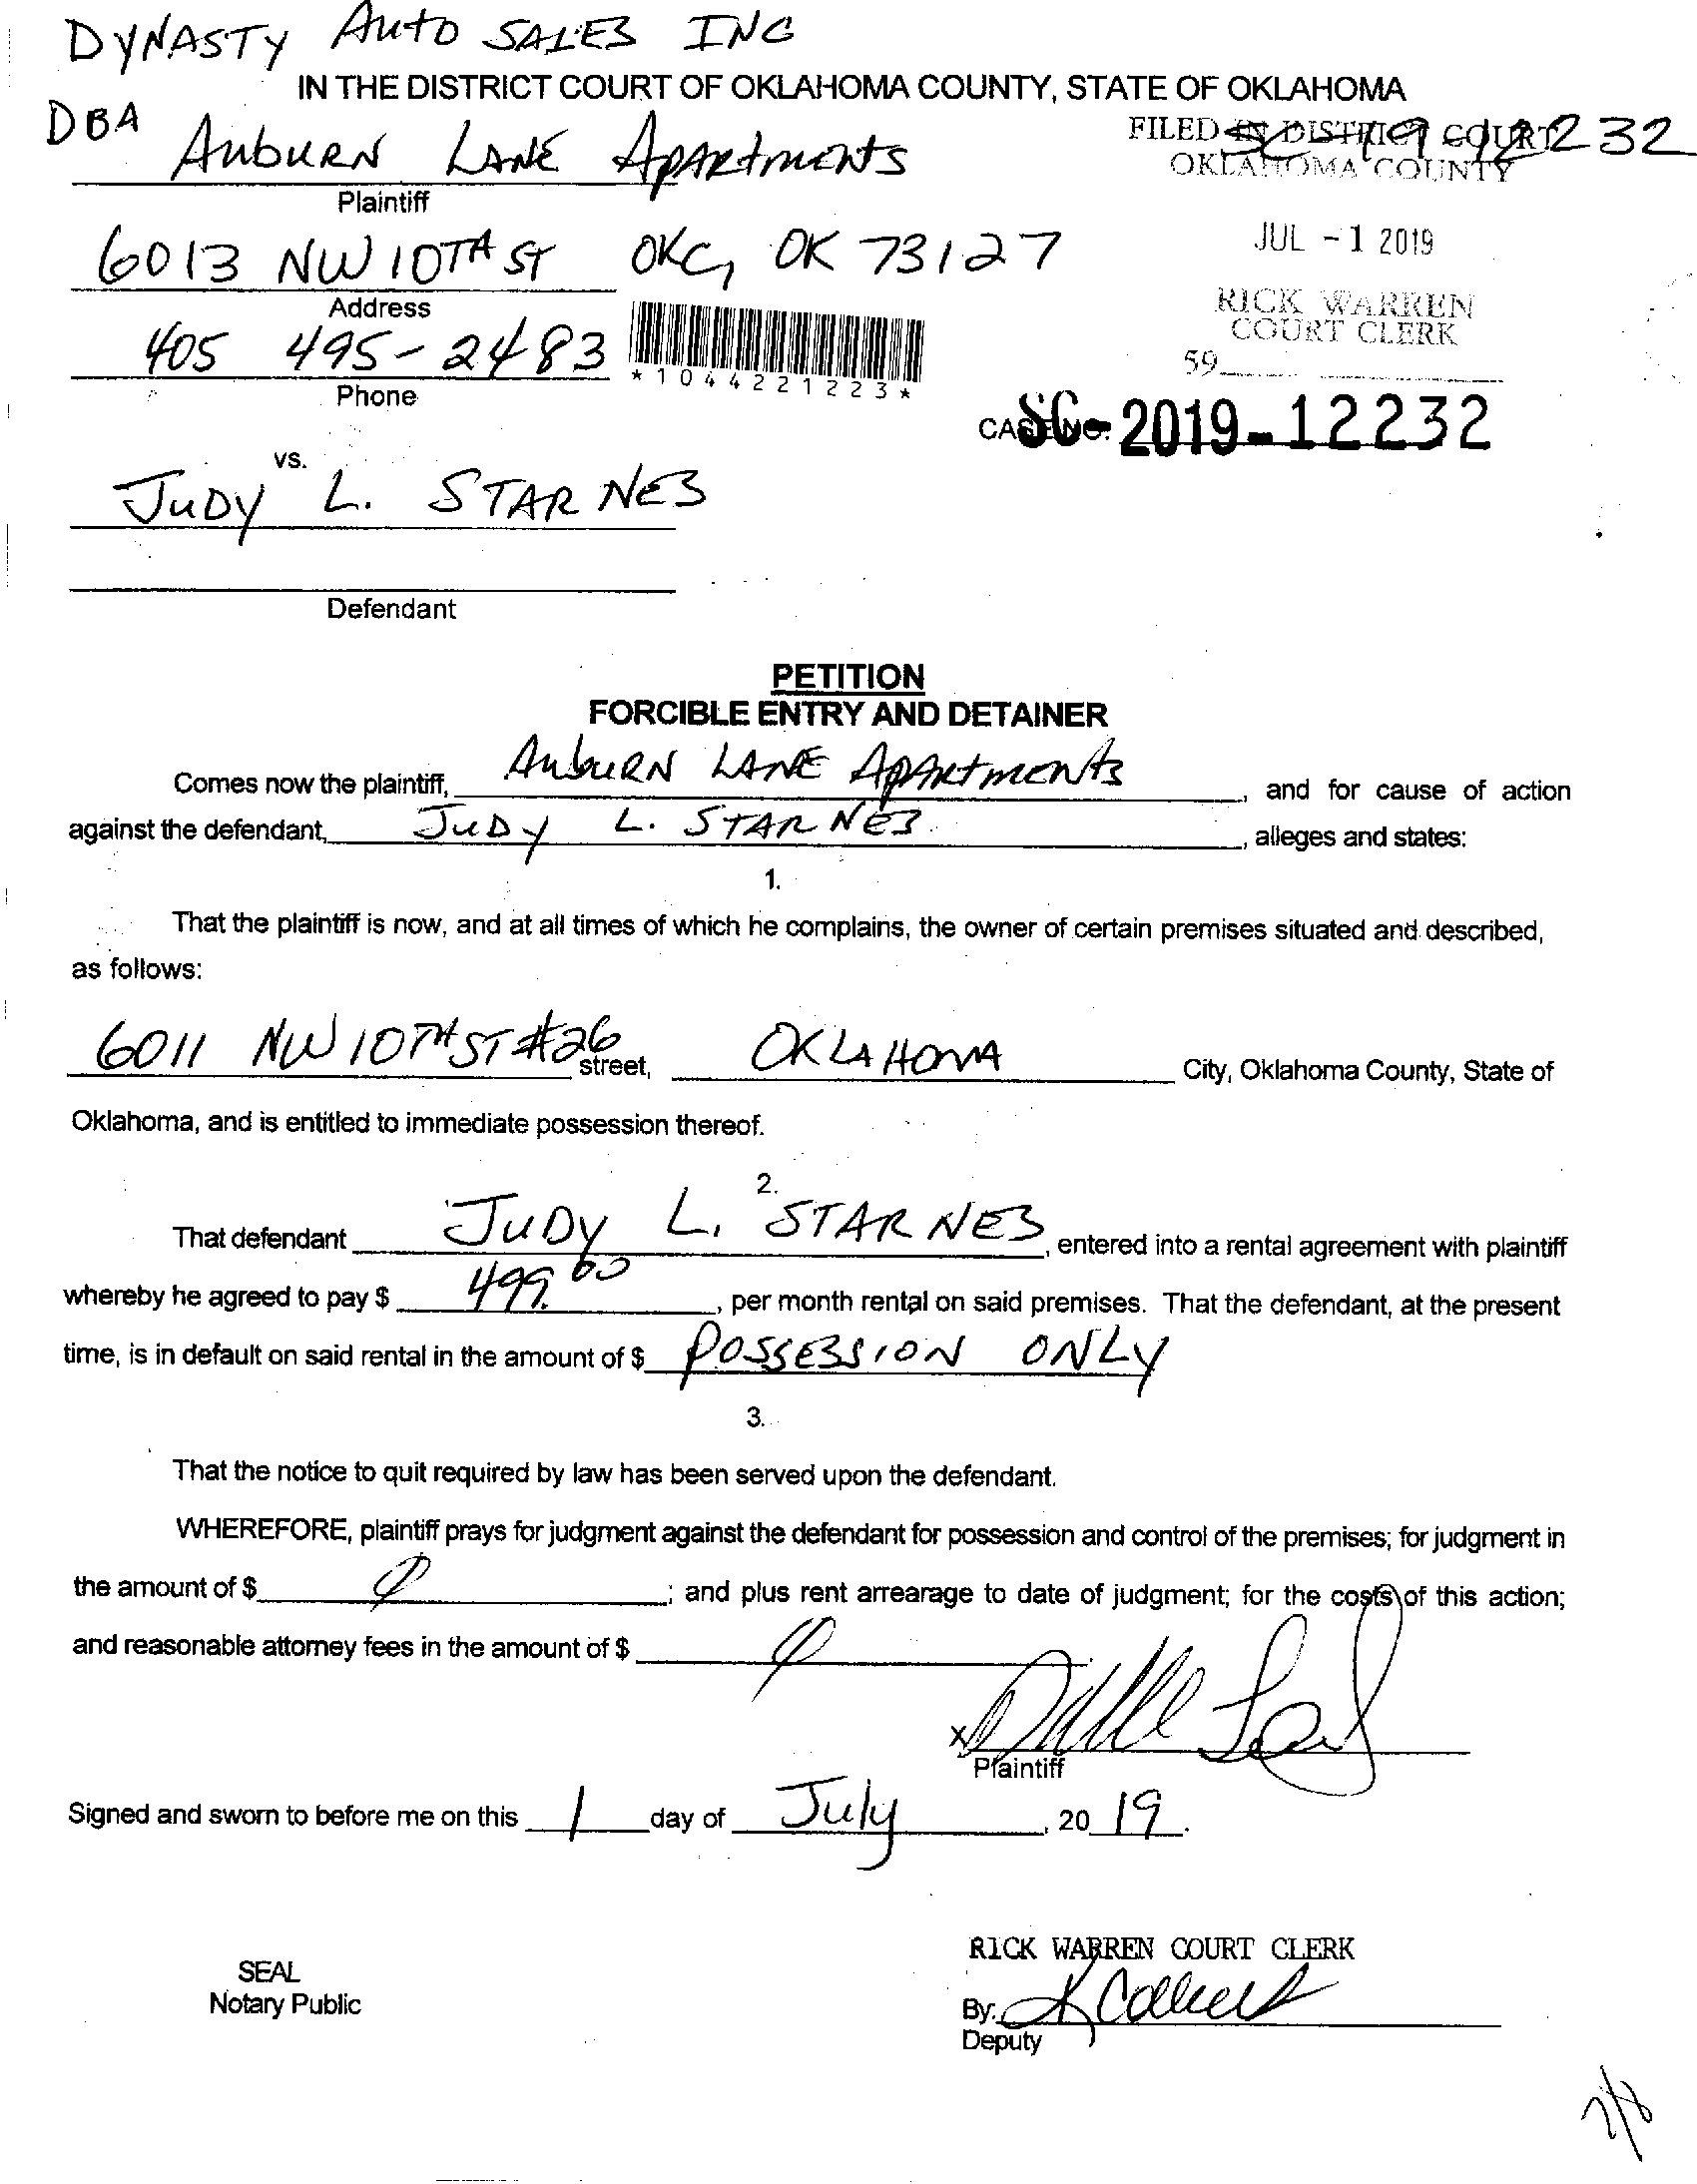 DYNASTY AUTO SALES INC
IN THE DISTRICT COURT OF OKLAHOMA COUNTY, STATE OF OKLAHOMA
DBA AUBURN LANE APARTMENTS
Plaintiff
FILED IN DISTRICT COURT
OKLAHOMA COUNTY
SC-19-12232
6013 NW 10TH ST OKC, OK 73127
Address
JUL -1 2019
RICK WARREN
COURT CLERK
59
405 495-2483
Phone
*1044221223*
CASE NO. SC-2019-12232
vs.
JUDY L. STARNES
Defendant
PETITION
FORCIBLE ENTRY AND DETAINER
Comes now the plaintiff, AUBURN LANE APARTMENTS, and for cause of action
against the defendant, JUDY L. STARNES, alleges and states:
1.
That the plaintiff is now, and at all times of which he complains, the owner of certain premises situated and described,
as follows:
6011 NW 10TH ST #26 street, OKLAHOMA City, Oklahoma County, State of
Oklahoma, and is entitled to immediate possession thereof.
2.
That defendant JUDY L. STARNES, entered into a rental agreement with plaintiff
whereby he agreed to pay $ 499.00, per month rental on said premises. That the defendant, at the present
time, is in default on said rental in the amount of $ POSSESSION ONLY
3.
That the notice to quit required by law has been served upon the defendant.
WHEREFORE, plaintiff prays for judgment against the defendant for possession and control of the premises; for judgment in
the amount of $ ; and plus rent arrearage to date of judgment; for the costs of this action;
and reasonable attorney fees in the amount of $
X
Plaintiff
Signed and sworn to before me on this 1 day of July, 20 19.
RICK WARREN COURT CLERK
SEAL
Notary Public
By:
Deputy